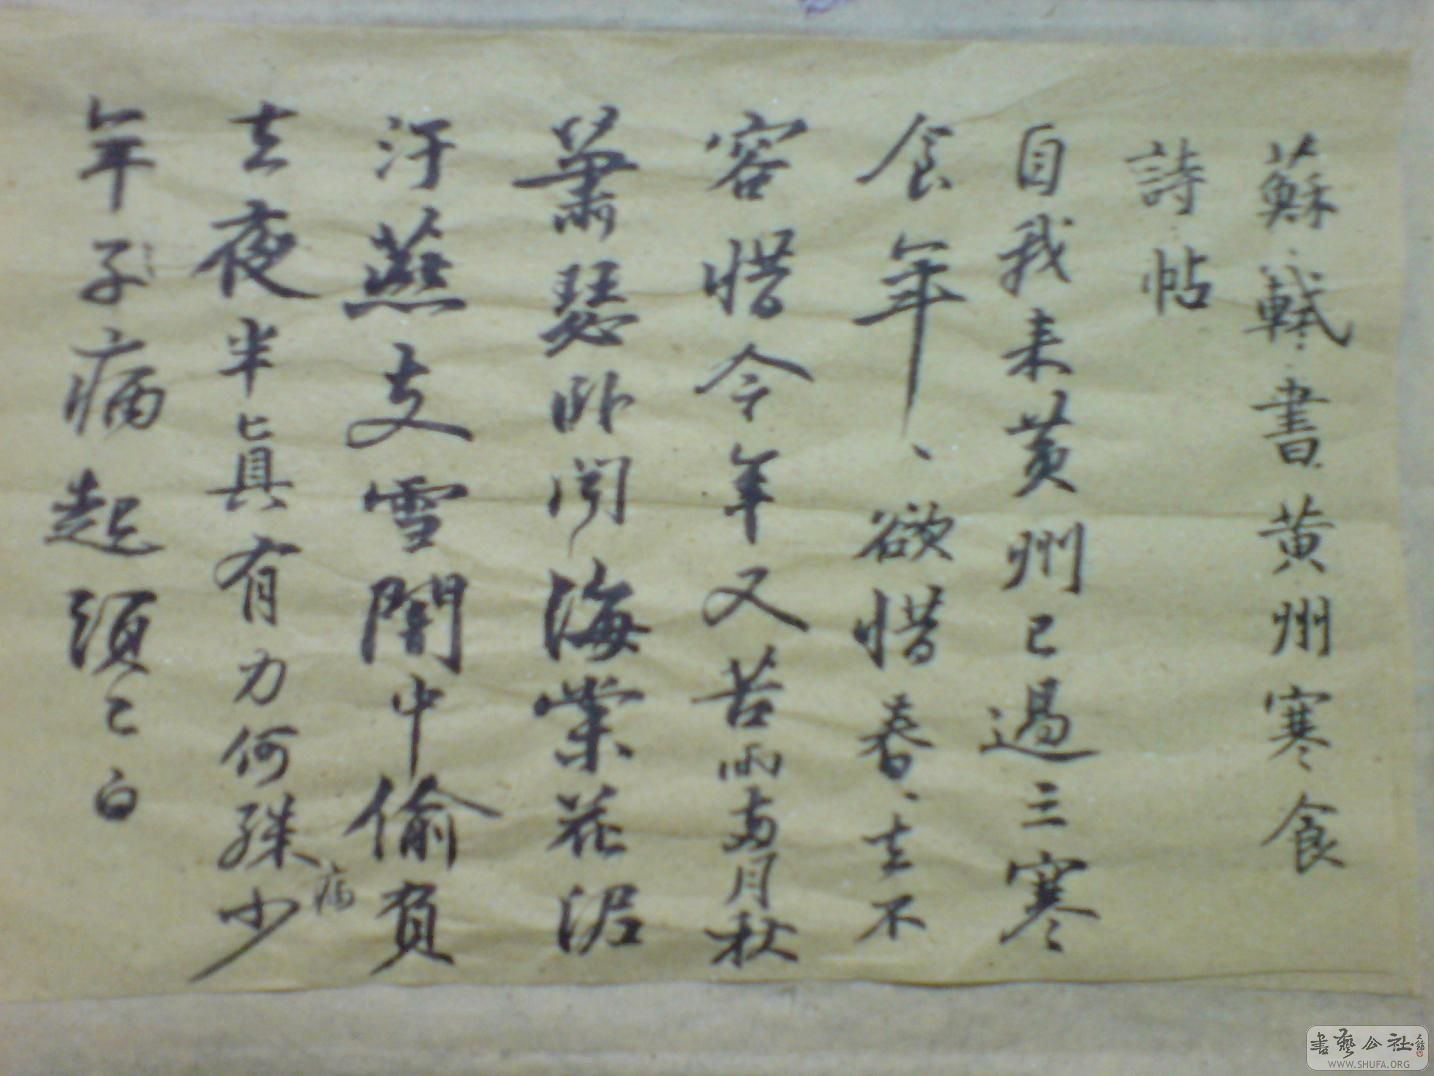 蘇軾書黄州寒食
詩帖
自我来黄州已過三寒
食年、欲惜春、去不
容惜今年又苦雨兩月秋
蕭瑟卧聞海棠花泥
汙燕支雪闇中偷負
去夜半真有力何殊少
病
年子病起頭已白
書藝公社
WWW.SHUFA.ORG